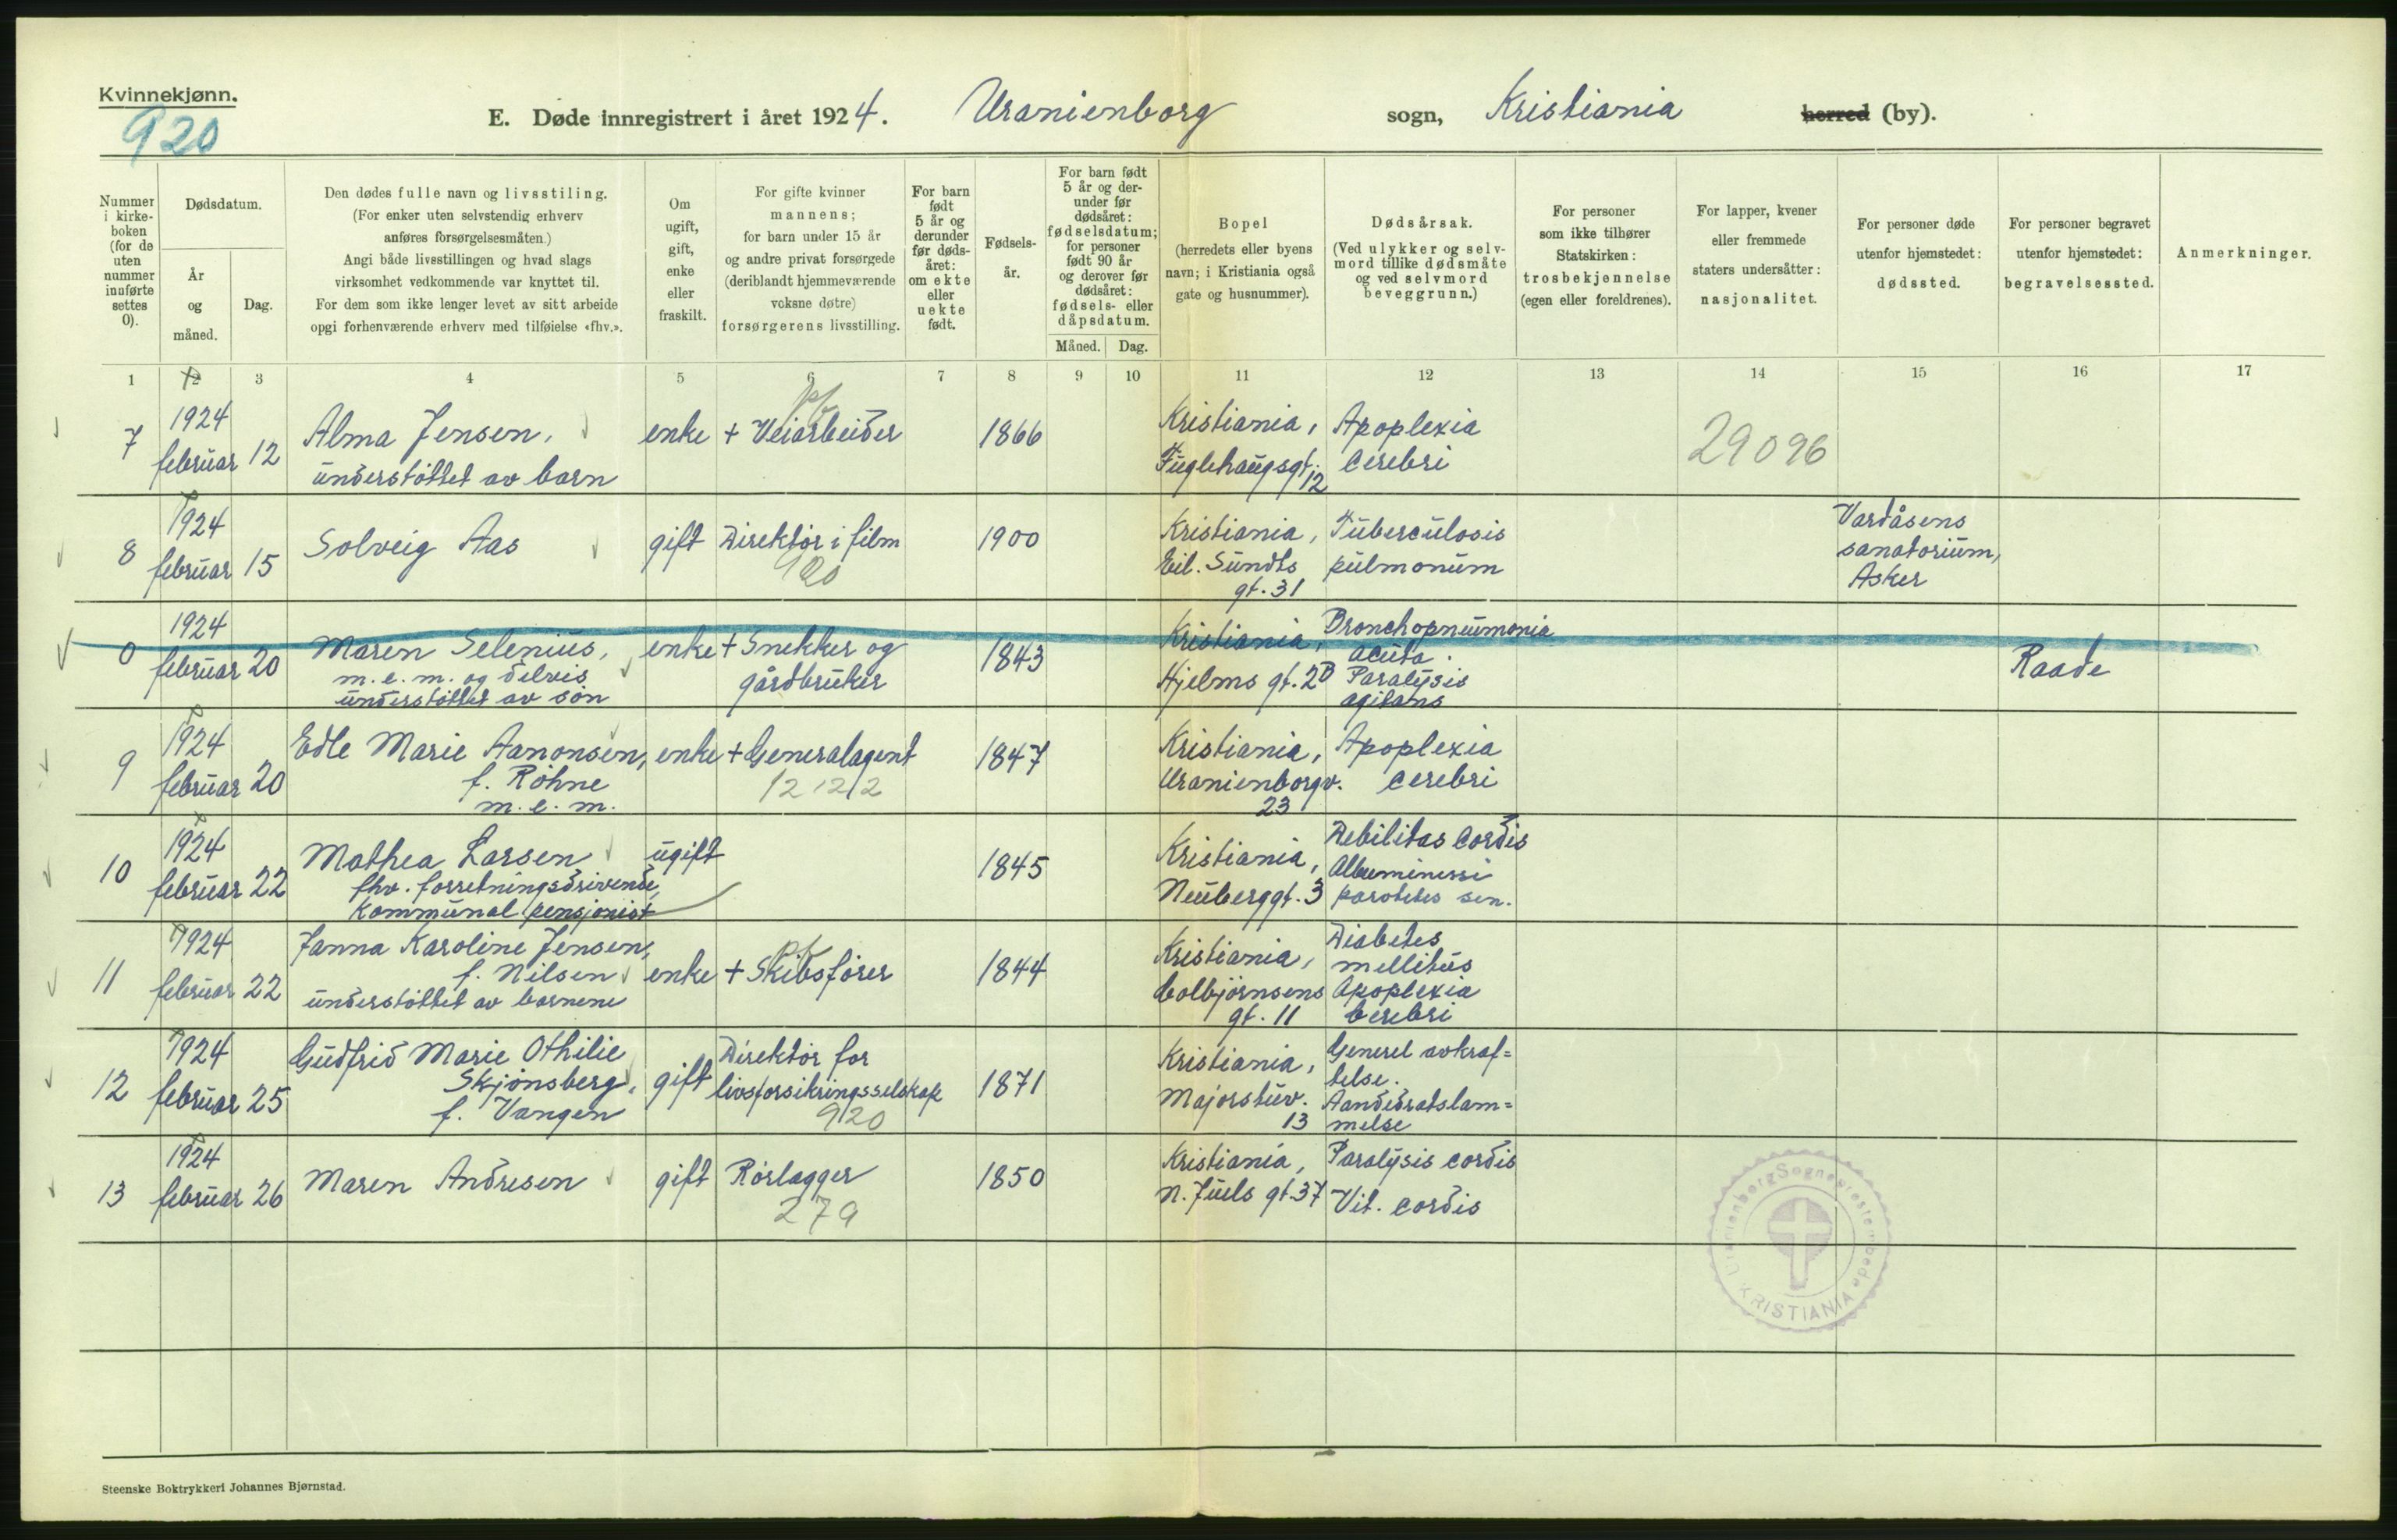 Kvinnekjønn.
920
E. Døde innregistrert i året 1924. Uranienborg sogn, Kristiania herred (by).
Nummer i kirkeboken (for de uten nummer innførte settes 0).
Dødsdatum.
År og måned.
Dag.
Den dødes fulle navn og livsstiling.
(For enker uten selvstendig erhverv
anføres forsørgelsesmåten.)
Angi både livsstillingen og hvad slags
virksomhet vedkommende var knyttet til.
For dem som ikke lenger levet av sitt arbeide
opgi forhenværende erhverv med tilføielse «fhv.».
Om
ugift,
gift,
enke
eller
fraskilt.
For gifte kvinner
mannens;
for barn under 15 år
og andre privat forsørgede
(deriblandt hjemmeværende
voksne døtre)
forsørgerens livsstilling.
For barn
født
5 år og
derunder
før døds-
året:
om ekte
eller
uekte
født.
Fødsels-
år.
For barn født
5 år og der-
under før
dødsåret:
fødselsdatum;
for personer
født 90 år
og derover før
dødsåret:
fødsels- eller
dåpsdatum.
Måned. Dag.
Bopel
(herredets eller byens
navn; i Kristiania også
gate og husnummer).
Dødsårsak.
(Ved ulykker og selv-
mord tillike dødsmåte
og ved selvmord
beveggrunn.)
For personer
som ikke tilhører
Statskirken:
trosbekjennelse
(egen eller foreldrenes).
For lapper, kvener
eller fremmede
staters undersåtter:
nasjonalitet.
For personer døde
utenfor hjemstedet:
dødssted.
For personer begravet
utenfor hjemstedet:
begravelsessted.
Anmerkninger.
1 2 3 4 5 6 7 8 9 10 11 12 13 14 15 16 17
7 1924 februar 12 Alma Jensen, understøttet av barn enke + Veiarbeider 1866 Kristiania, Fuglehaugsgt. 12 Apoplexia cerebri 29096
8 1924 februar 15 Solveig Aas gift Direktør i film 920 1900 Kristiania, Eil. Sundts gt. 31 Tuberculosis pulmonum Vardåsens sanatorium, Asker
0 1924 februar 20 Maren Selenius, m. e. m. og delvis understøttet av søn enke + Snekker og gårdbruker 1843 Kristiania, Hjelms gt. 2B Bronchopneumonia acuta. Paralysis agitans Raade
9 1924 februar 20 Edle Marie Aanonsen, f. Røhne m. e. m. enke + Generalagent 1847 Kristiania, Uranienborgv. 23 Apoplexia cerebri
10 1924 februar 22 Mathea Larsen fhv. forretningsdrivende, kommunal pensjonist ugift 1845 Kristiania, Neuberggt. 3 Debilitas cordis sen.
11 1924 februar 22 Janna Karoline Jensen, f. Nilsen understøttet av barnene enke + Skibsfører 1844 Kristiania, Colbjørnsens gt. 11 Diabetes mellitus Apoplexia Cerebri
12 1924 februar 25 Gudfrid Marie Othilie Skjønsberg, f. Vangen gift Direktør for livsforsikringsselskap 920 1871 Kristiania, Majorstuv. 13 Generel avkraf= telse. Aandedrætslam= melse
13 1924 februar 26 Maren Andresen gift Rørlægger 279 1850 Kristiania, N. Juels gt. 37 Paralysis cordis Vit. cordis
Uranienborg Sogneprestembede
KRISTIANIA
Steenske Boktrykkeri Johannes Bjørnstad.